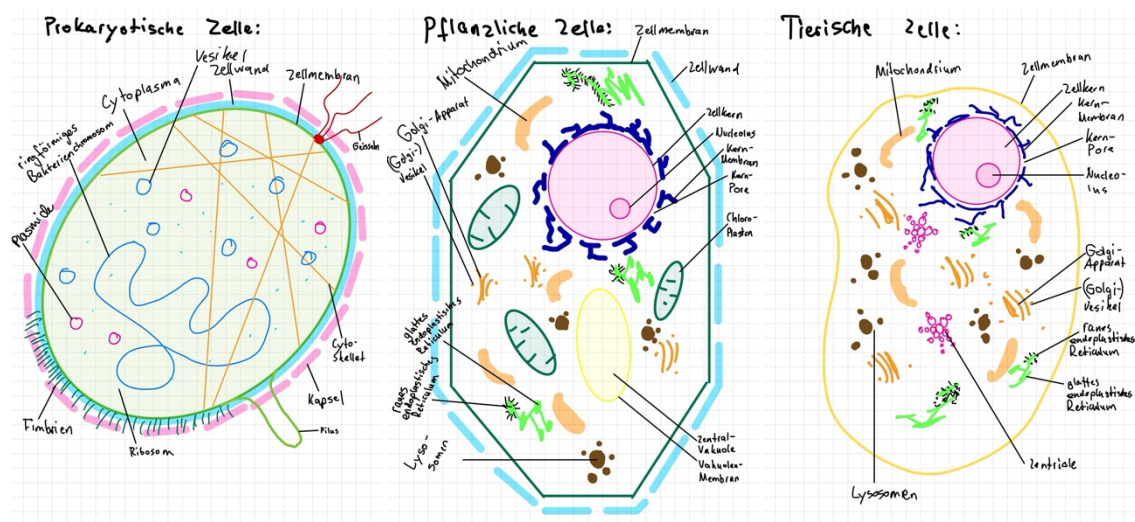 Prokaryotische Zelle:
Vesikel
Zellwand
Zellmembran
Cytoplasma
ringförmiges
Bakterienchromosom
Plasmide
Geisseln
Cyto-
Skellet
Kapsel
Pilus
Ribosom
Fimbrien
Pflanzliche Zelle:
Zellmembran
Zellwand
Mitochondrium
Golgi-Apparat
(Golgi-)
Vesikel
Zellkern
Nucleolus
Kern-
Membran
Kern-
Pore
Chloro-
Plasten
glattes
endoplastisches
Reticulum
raues
endoplastisches
Reticulum
Lyso-
somen
Zentral-
Vakuole
Vakuolen-
Membran
Tierische Zelle:
Mitochondrium
Zellmembran
Zellkern
Kern-
Membran
Kern-
Pore
Nucleo-
lus
Golgi-
Apparat
(Golgi-)
Vesikel
raues
endoplastisches
Reticulum
glattes
endoplastisches
Reticulum
Zentriole
Lysosomen